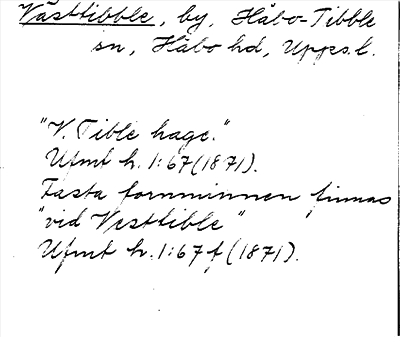 Västtibble, by, Håbo-Tibble
sn, Håbo hd, Upps. l.
"V. Tible hage."
Ufmt h. 1:67 (1871).
Fasta fornminnen finnas
"vid Vesttible"
Ufmt h. 1:67 f (1871).